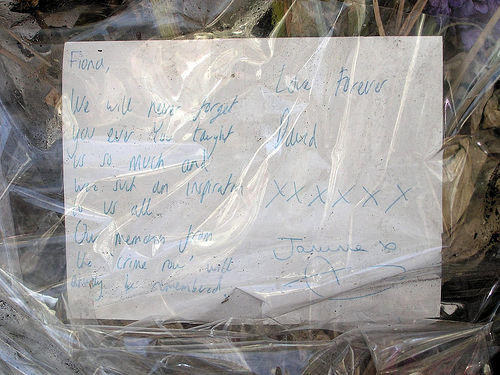 Fiona,
We will never forget
you ever. You taught
us so much and
were such an inspiration
to us all.
Our memories from
the 'crime row' will
always be remembered
Love Forever
David
XXXXXX
Janine x